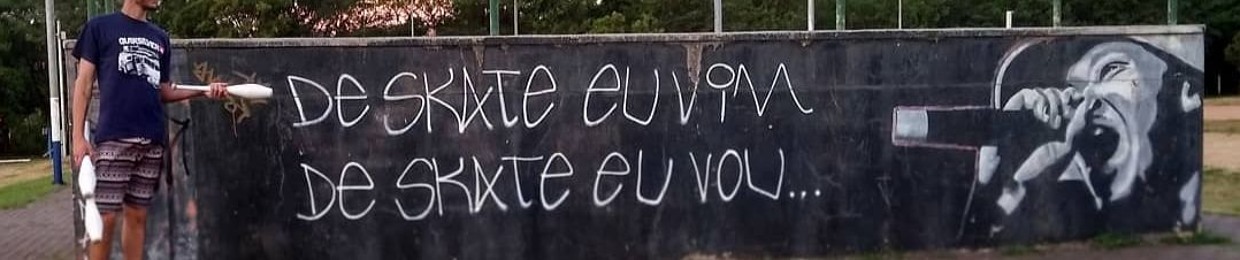 QUIKSILVER
DE SKATE EU VIM
DE SKATE EU VOU...